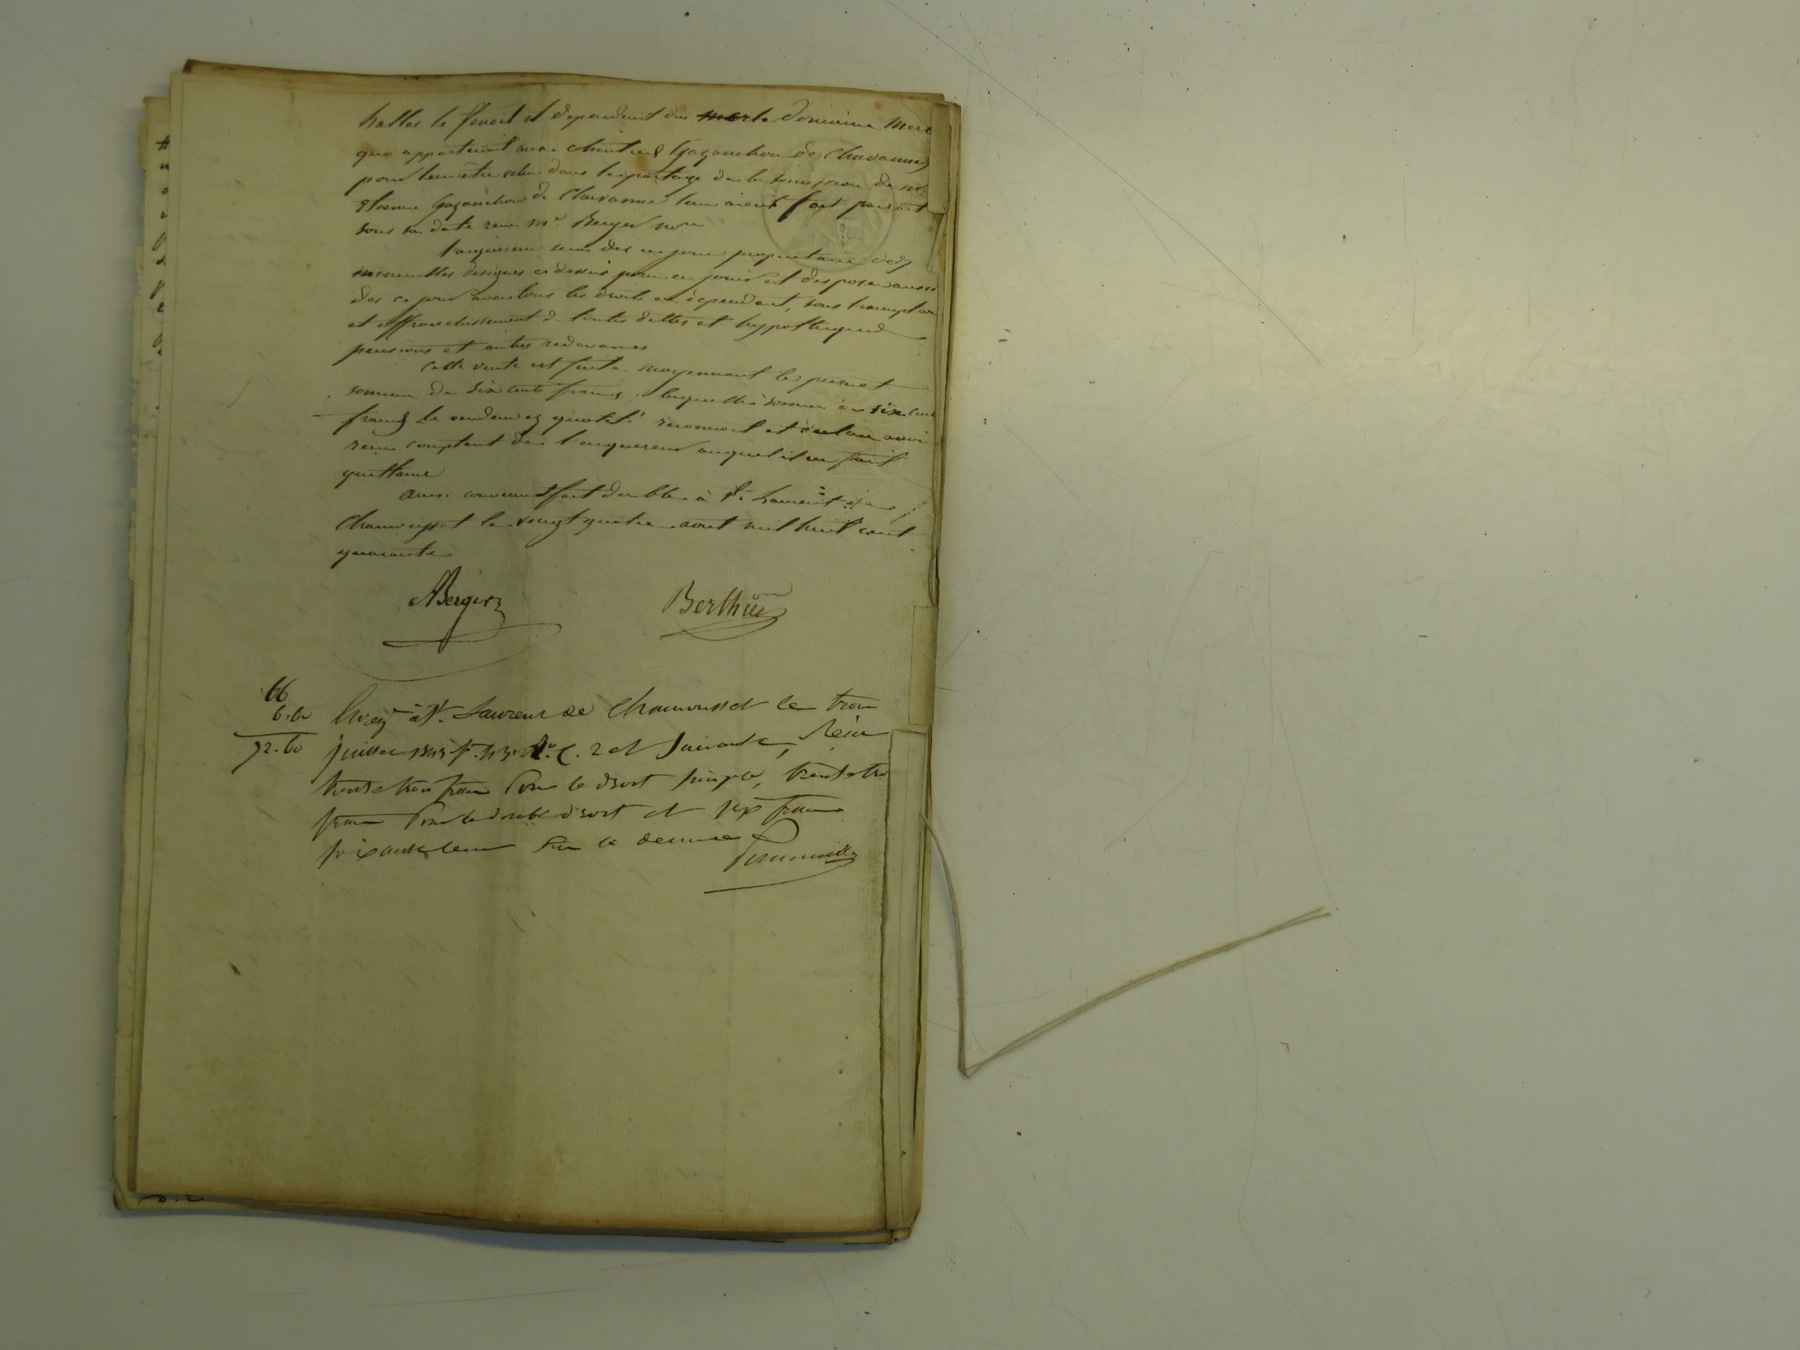 halles le fenoil et dependent du domaine Mere
qui appartenait aux cohéritiers Gazanchon de Chavannes
pour leur être echu dans le partage de la succession de mr
etienne Gazanchon de Chavanne leur aieul fait par acte
sous sa date reçu me Berger nore
l'acquereur sera des ce jour proprietaire des
immeubles designes ci dessus pour en jouir et disposer aussi
des ce jour avec tous les droits en dependant, sous
et affranchissement de toutes dettes et hypotheques
pensions et autres redevances
cette vente est faite moyennant le prix et
somme de six cents francs, laquelle somme de six cents
francs le vendeur reconnoit et declare avoir
reçu comptant de l'acquereur auquel il en fait
quittance
Ainsi convenu et fait double à St Laurent de
Chamousset le vingt quatre aout mil huit cent
quarante
ABerger
Berthier
66
6.60
72.60
Enregt à St. Laurent de Chamousset le trois
juillet 1843 fo. 43. Ro. C. 2 et suivante, Reçu
trente trois francs pour le droit simple, trente trois
francs pour le double droit et six francs
soixante cent pour le decime